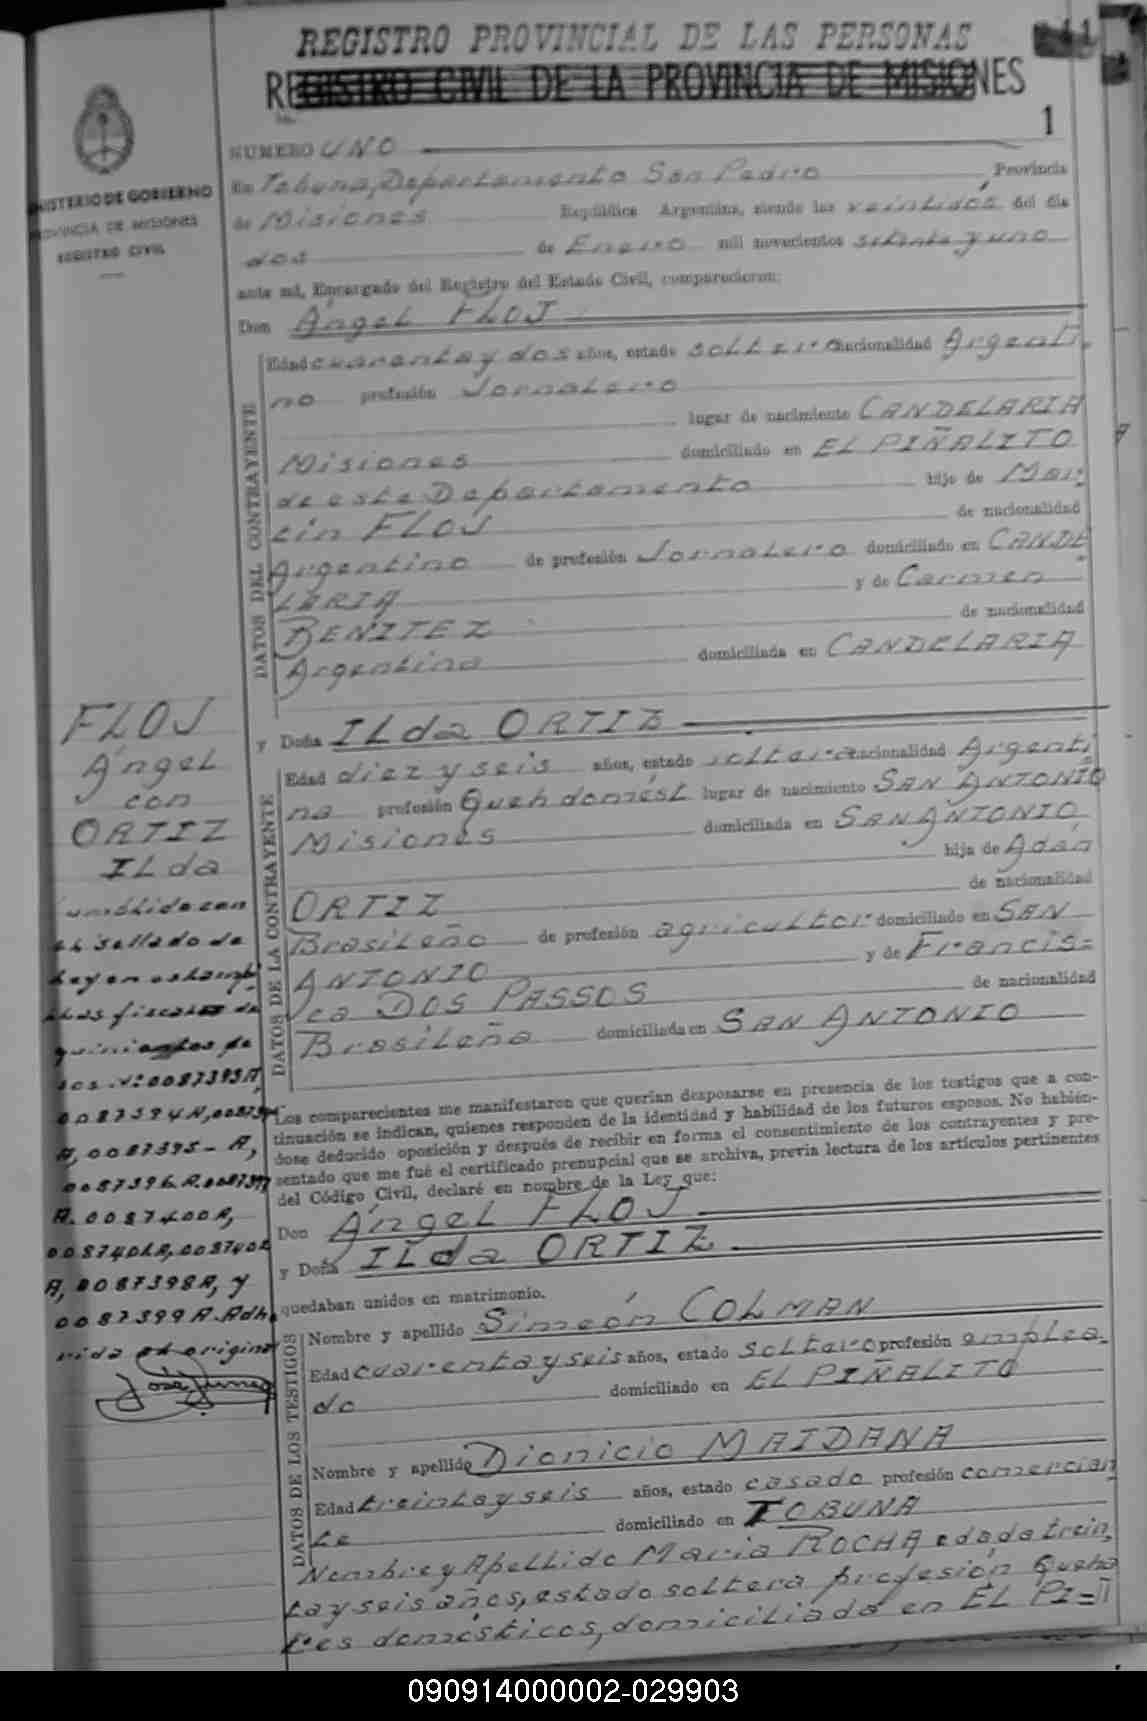 REGISTRO PROVINCIAL DE LAS PERSONAS
REGISTRO CIVIL DE LA PROVINCIA DE MISIONES
1
MINISTERIO DE GOBIERNO
PROVINCIA DE MISIONES
REGISTRO CIVIL
NUMERO UNO
En Tobuna, Departamento San Pedro Provincia
de Misiones República Argentina, siendo las veintidós del día
dos de Enero mil novecientos setenta y uno
ante mí, Encargado del Registro del Estado Civil, comparecieron:
Don Ángel FLOJ
DATOS DEL CONTRAYENTE
Edad cuarenta y dos años, estado soltero nacionalidad Argenti
no profesión Jornalero
lugar de nacimiento CANDELARIA
Misiones domiciliado en EL PIÑALITO
de este Departamento hijo de Mar
tin FLOJ de nacionalidad
Argentino de profesión Jornalero domiciliado en CANDE
LARIA y de Carmen
BENITEZ de nacionalidad
Argentina domiciliada en CANDELARIA
y Doña ILda ORTIZ
DATOS DE LA CONTRAYENTE
Edad diez y seis años, estado soltera nacionalidad Argenti
na profesión Queh domést lugar de nacimiento SAN ANTONIO
Misiones domiciliada en SAN ANTONIO
hija de Adán
ORTIZ de nacionalidad
Brasileño de profesión agricultor domiciliado en SAN
ANTONIO y de Francis=
ca DOS PASSOS de nacionalidad
Brasileña domiciliada en SAN ANTONIO
Los comparecientes me manifestaron que querían desposarse en presencia de los testigos que a con-
tinuación se indican, quienes responden de la identidad y habilidad de los futuros esposos. No habién-
dose deducido oposición y después de recibir en forma el consentimiento de los contrayentes y pre-
sentado que me fué el certificado prenupcial que se archiva, previa lectura de los artículos pertinentes
del Código Civil, declaré en nombre de la Ley que:
Don Ángel FLOJ
y Doña ILda ORTIZ
quedaban unidos en matrimonio.
DATOS DE LOS TESTIGOS
Nombre y apellido Simeón COLMAN
Edad cuarenta y seis años, estado soltero profesión emplea-
do domiciliado en EL PIÑALITO
Nombre y apellido Dionicio MAIDANA
Edad treinta y seis años, estado casado profesión comercian
te domiciliado en TOBUNA
Nombre y Apellido Maria ROCHA edad trein,
ta y seis años, estado soltera profesión Queha
ces domésticos, domiciliada en EL PI=
FLOJ
Ángel
con
ORTIZ
ILda
umplido con
el sellado de
ley en estampi
llas fiscales de
quinientos pe
sos. Nº 0087393A,
0087394A,
A, 0087395-A,
0087396.A.0087397
A. 0087400A,
0087401A, 0087402
A, 0087398A, y
0087399A. Adhe
rida al origina
090914000002-029903